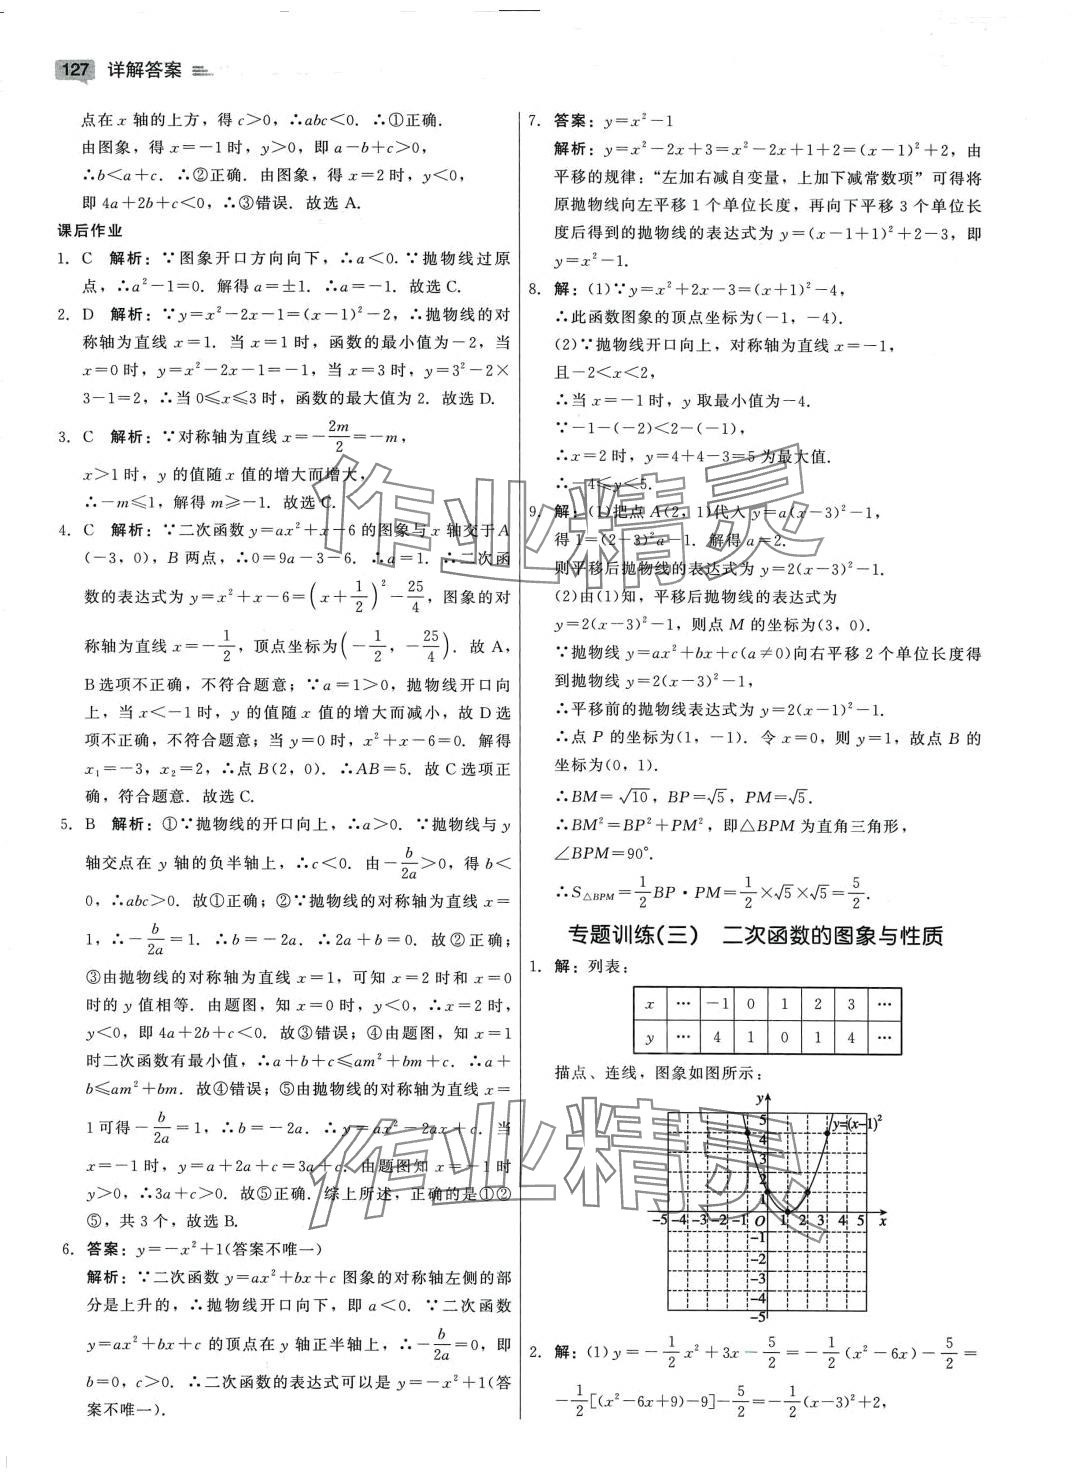 127 详解答案
点在 x 轴的上方，得 c＞0，∴abc＜0. ∴①正确.
由图象，得 x＝－1 时，y＞0，即 a－b＋c＞0，
∴b＜a＋c. ∴②正确. 由图象，得 x＝2 时，y＜0，
即 4a＋2b＋c＜0，∴③错误. 故选 A.
课后作业
1. C 解析：∵图象开口方向向下，∴a＜0. ∵抛物线过原
点，∴a²－1＝0. 解得 a＝±1. ∴a＝－1. 故选 C.
2. D 解析：∵y＝x²－2x－1＝(x－1)²－2，∴抛物线的对
称轴为直线 x＝1. 当 x＝1 时，函数的最小值为－2，当
x＝0 时，y＝x²－2x－1＝－1，当 x＝3 时，y＝3²－2×
3－1＝2，∴当 0≤x≤3 时，函数的最大值为 2. 故选 D.
3. C 解析：∵对称轴为直线 x＝－2m/2＝－m，
x＞1 时，y 的值随 x 值的增大而增大，
∴－m≤1，解得 m≥－1. 故选 C.
4. C 解析：∵二次函数 y＝ax²＋x－6 的图象与 x 轴交于 A
(－3，0)，B 两点，∴0＝9a－3－6. ∴a＝1. ∴二次函
数的表达式为 y＝x²＋x－6＝(x＋1/2)²－25/4，图象的对
称轴为直线 x＝－1/2，顶点坐标为(－1/2，－25/4). 故 A，
B 选项不正确，不符合题意；∵a＝1＞0，抛物线开口向
上，当 x＜－1 时，y 的值随 x 值的增大而减小，故 D 选
项不正确，不符合题意；当 y＝0 时，x²＋x－6＝0. 解得
x₁＝－3，x₂＝2，∴点 B(2，0). ∴AB＝5. 故 C 选项正
确，符合题意. 故选 C.
5. B 解析：①∵抛物线的开口向上，∴a＞0. ∵抛物线与 y
轴交点在 y 轴的负半轴上，∴c＜0. 由－b/2a＞0，得 b＜
0，∴abc＞0. 故①正确；②∵抛物线的对称轴为直线 x＝
1，∴－b/2a＝1. ∴b＝－2a. ∴2a＋b＝0. 故②正确；
③由抛物线的对称轴为直线 x＝1，可知 x＝2 时和 x＝0
时的 y 值相等. 由题图，知 x＝0 时，y＜0，∴x＝2 时，
y＜0，即 4a＋2b＋c＜0. 故③错误；④由题图，知 x＝1
时二次函数有最小值，∴a＋b＋c≤am²＋bm＋c. ∴a＋
b≤am²＋bm. 故④错误；⑤由抛物线的对称轴为直线 x＝
1 可得－b/2a＝1，∴b＝－2a. ∴y＝ax²－2ax＋c. 当
x＝－1 时，y＝a＋2a＋c＝3a＋c. 由题图知 x＝－1 时
y＞0，∴3a＋c＞0. 故⑤正确. 综上所述，正确的是①②
⑤，共 3 个，故选 B.
6. 答案：y＝－x²＋1(答案不唯一)
解析：∵二次函数 y＝ax²＋bx＋c 图象的对称轴左侧的部
分是上升的，∴抛物线开口向下，即 a＜0. ∵二次函数
y＝ax²＋bx＋c 的顶点在 y 轴正半轴上，∴－b/2a＝0，即
b＝0，c＞0. ∴二次函数的表达式可以是 y＝－x²＋1(答
案不唯一).
7. 答案：y＝x²－1
解析：y＝x²－2x＋3＝x²－2x＋1＋2＝(x－1)²＋2，由
平移的规律：“左加右减自变量，上加下减常数项”可得将
原抛物线向左平移 1 个单位长度，再向下平移 3 个单位长
度后得到的抛物线的表达式为 y＝(x－1＋1)²＋2－3，即
y＝x²－1.
8. 解：(1)∵y＝x²＋2x－3＝(x＋1)²－4，
∴此函数图象的顶点坐标为(－1，－4).
(2)∵抛物线开口向上，对称轴为直线 x＝－1，
且－2＜x＜2，
∴当 x＝－1 时，y 取最小值为－4.
∵－1－(－2)＜2－(－1)，
∴x＝2 时，y＝4＋4－3＝5 为最大值.
∴－4≤y＜5.
9. 解：(1)把点 A(2，1)代入 y＝a(x－3)²－1，
得 1＝(2－3)²a－1. 解得 a＝2.
则平移后抛物线的表达式为 y＝2(x－3)²－1.
(2)由(1)知，平移后抛物线的表达式为
y＝2(x－3)²－1，则点 M 的坐标为(3，0).
∵抛物线 y＝ax²＋bx＋c(a≠0)向右平移 2 个单位长度得
到抛物线 y＝2(x－3)²－1，
∴平移前的抛物线表达式为 y＝2(x－1)²－1.
∴点 P 的坐标为(1，－1). 令 x＝0，则 y＝1，故点 B 的
坐标为(0，1).
∴BM＝√10，BP＝√5，PM＝√5.
∴BM²＝BP²＋PM²，即△BPM 为直角三角形，
∠BPM＝90°.
∴S△BPM＝1/2BP·PM＝1/2×√5×√5＝5/2.
专题训练(三) 二次函数的图象与性质
1. 解：列表：
x … －1 0 1 2 3 …
y … 4 1 0 1 4 …
描点、连线，图象如图所示：
y
5
4
3
2
1
y=(x-1)²
-5 -4 -3 -2 -1 O 1 2 3 4 5 x
-1
-2
-3
-4
-5
2. 解：(1)y＝－1/2x²＋3x－5/2＝－1/2(x²－6x)－5/2＝
－1/2[(x²－6x＋9)－9]－5/2＝－1/2(x－3)²＋2，
作业精灵
作业精灵